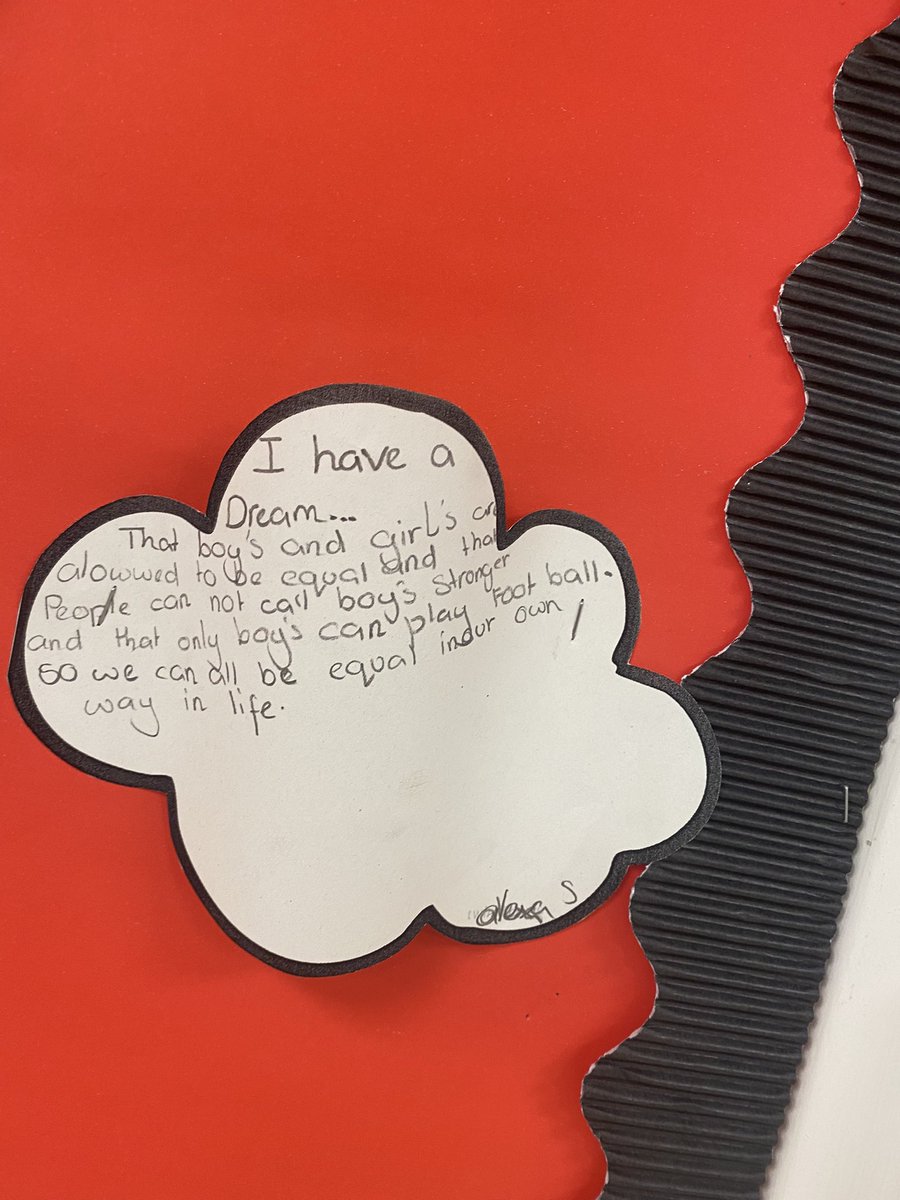 I have a
Dream...
That boy's and girl's are
alowwed to be equal and that
People can not call boy's stronger
and that only boy's can play Foot ball.
so we can all be equal in our own
way in life.
alexa S